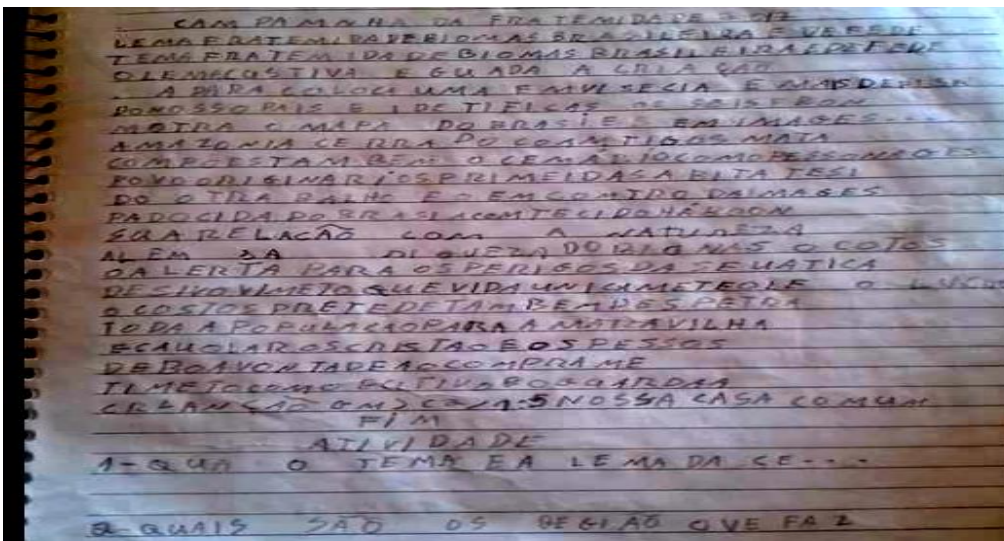 CAMPAMNHA DA FRATEMIDADE 2017
LEMA FRATEMIDADE BIOMAS BRASILEIRA E VEFEDE
TEMA FRATEMIDADE BIOMAS BRASILEIRA E DEFEDE
O LEMA CUSTIVA E GUADA A CRIAÇAO
A PARA COLOCI UMA EMVISECIA E MAIS
DO NOSSO PAIS E IDETIFICAS OS SEIS
MOTRA O MAPA DO BRASIE E EM IMAGES...
AMAZONIA CERRADO COAMTIGAS MATA
COMPOESTAM BEM O CEMARIO COMO
POVO ORIGINARIOS PRIMEIDAS A
DO OTRABALHO E O EMCOMTRO DA IMAGES
PADOCIDA DO BRASI ACOMTECIDO
SUA RELAÇÃO COM A NATUREZA
ALEM DA DIQUEZA DO BIO NAS O COTOS
O ALERTA PARA OS PERIGOS DA
QUE VIDA UNICAMETE O LUCRO
O COSTOS PRETEDE TAMBEM DESPETRA
TODA A POPULAÇAO PARA A MARAVILHA
OS CRISTAO E OS PESSOS
DE BOA VONTADE AO COMPRAME
TIMETO COMO CUTIVA BO GUARDAA
2:15 NOSSA CASA COMUM
FIM
ATIVIDADE
1-QUA O TEMA EA LEMA DA CE----
2-QUAIS SÃO OS REGIAO QVE FAZ